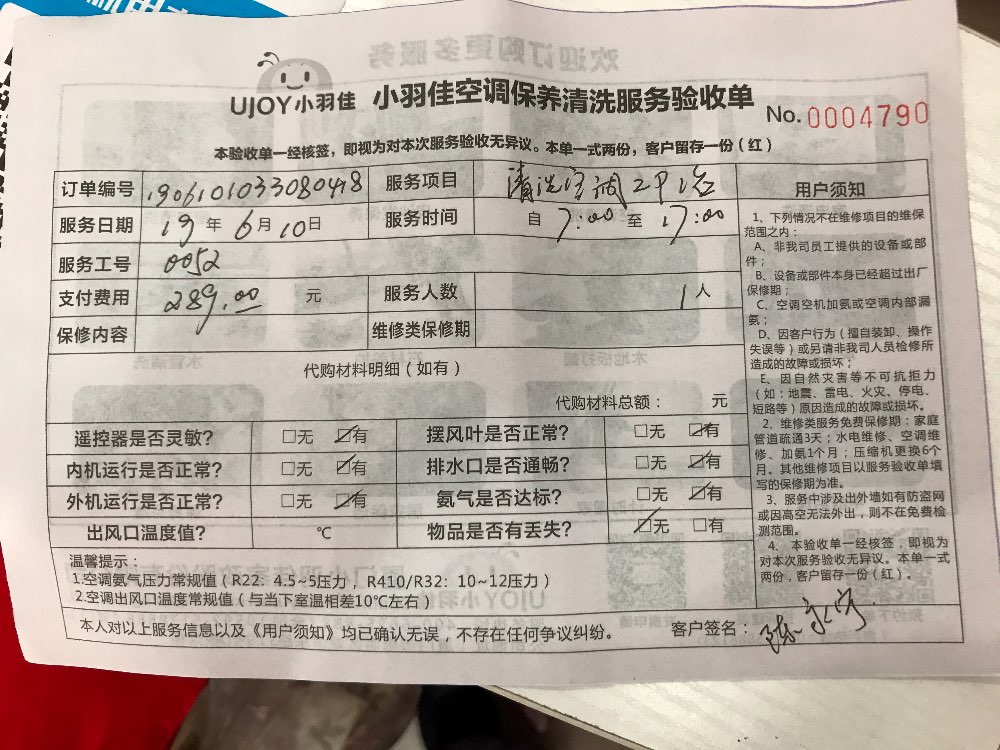 UJOY小羽佳 小羽佳空调保养清洗服务验收单
No. 0004790
本验收单一经核签，即视为对本次服务验收无异议。本单一式两份，客户留存一份（红）
订单编号 1906101033080418 服务项目 清洗空调
服务日期 19 年 6 月 10 日 服务时间 自 7:00 至 17:00
服务工号 0052
支付费用 289.00 元 服务人数 1 人
保修内容 维修类保修期
代购材料明细（如有）
代购材料总额： 元
遥控器是否灵敏? □无 ☑有 摆风叶是否正常? □无 ☑有
内机运行是否正常? □无 ☑有 排水口是否通畅? □无 ☑有
外机运行是否正常? □无 ☑有 氨气是否达标? □无 ☑有
出风口温度值? ℃ 物品是否有丢失? ☑无 □有
温馨提示：
1.空调氨气压力常规值（R22: 4.5~5压力，R410/R32: 10~12压力）
2.空调出风口温度常规值（与当下室温相差10℃左右）
本人对以上服务信息以及《用户须知》均已确认无误，不存在任何争议纠纷。 客户签名：
用户须知
1、下列情况不在维修项目的维保
范围之内：
A、非我司员工提供的设备或部
件；
B、设备或部件本身已经超过出厂
保修期；
C、空调空机加氨或空调内部漏
氨；
D、因客户行为（擅自装卸、操作
失误等）或另请非我司人员检修所
造成的故障或损坏；
E、因自然灾害等不可抗拒力
（如：地震、雷电、火灾、停电、
短路等）原因造成的故障或损坏。
2、维修类服务免费保修期：家庭
管道疏通3天；水电维修、空调维
修、加氨1个月；压缩机更换6个
月。其他维修项目以服务验收单填
写的保修期为准。
3、服务中涉及出外墙如有防盗网
或因高空无法外出，则不在免费检
测范围。
4、本验收单一经核签，即视为
对本次服务验收无异议。本单一式
两份，客户留存一份（红）。